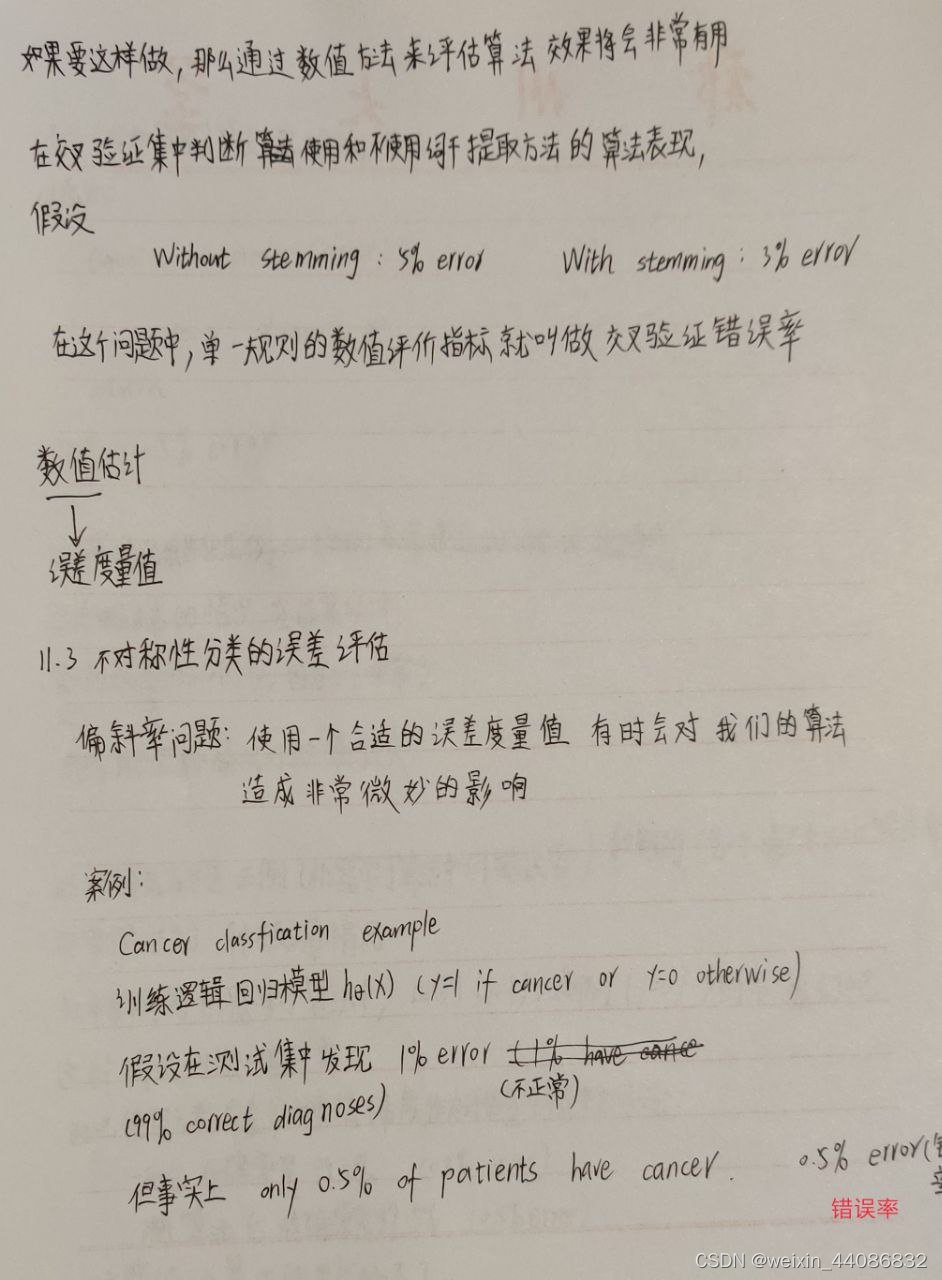 如果要这样做，那么通过数值方法来评估算法 效果将会非常有用
在交叉验证集中判断 使用和不使用词干提取方法的算法表现，
假设
Without stemming : 5% error With stemming : 3% error
在这个问题中，单一规则的数值评价指标就叫做 交叉验证错误率
数值估计
↓
误差度量值
11.3 不对称性分类的误差评估
偏斜率问题：使用一个合适的误差度量值 有时会对 我们的算法
造成非常微妙的影响
案例：
Cancer classfication example
训练逻辑回归模型 hθ(X) (y=1 if cancer or y=0 otherwise)
假设在测试集中发现 1% error (1% have cance
(不正常)
(99% correct diagnoses)
但事实上 only 0.5% of patients have cancer. 0.5% error(
错误率
CSDN @weixin_44086832